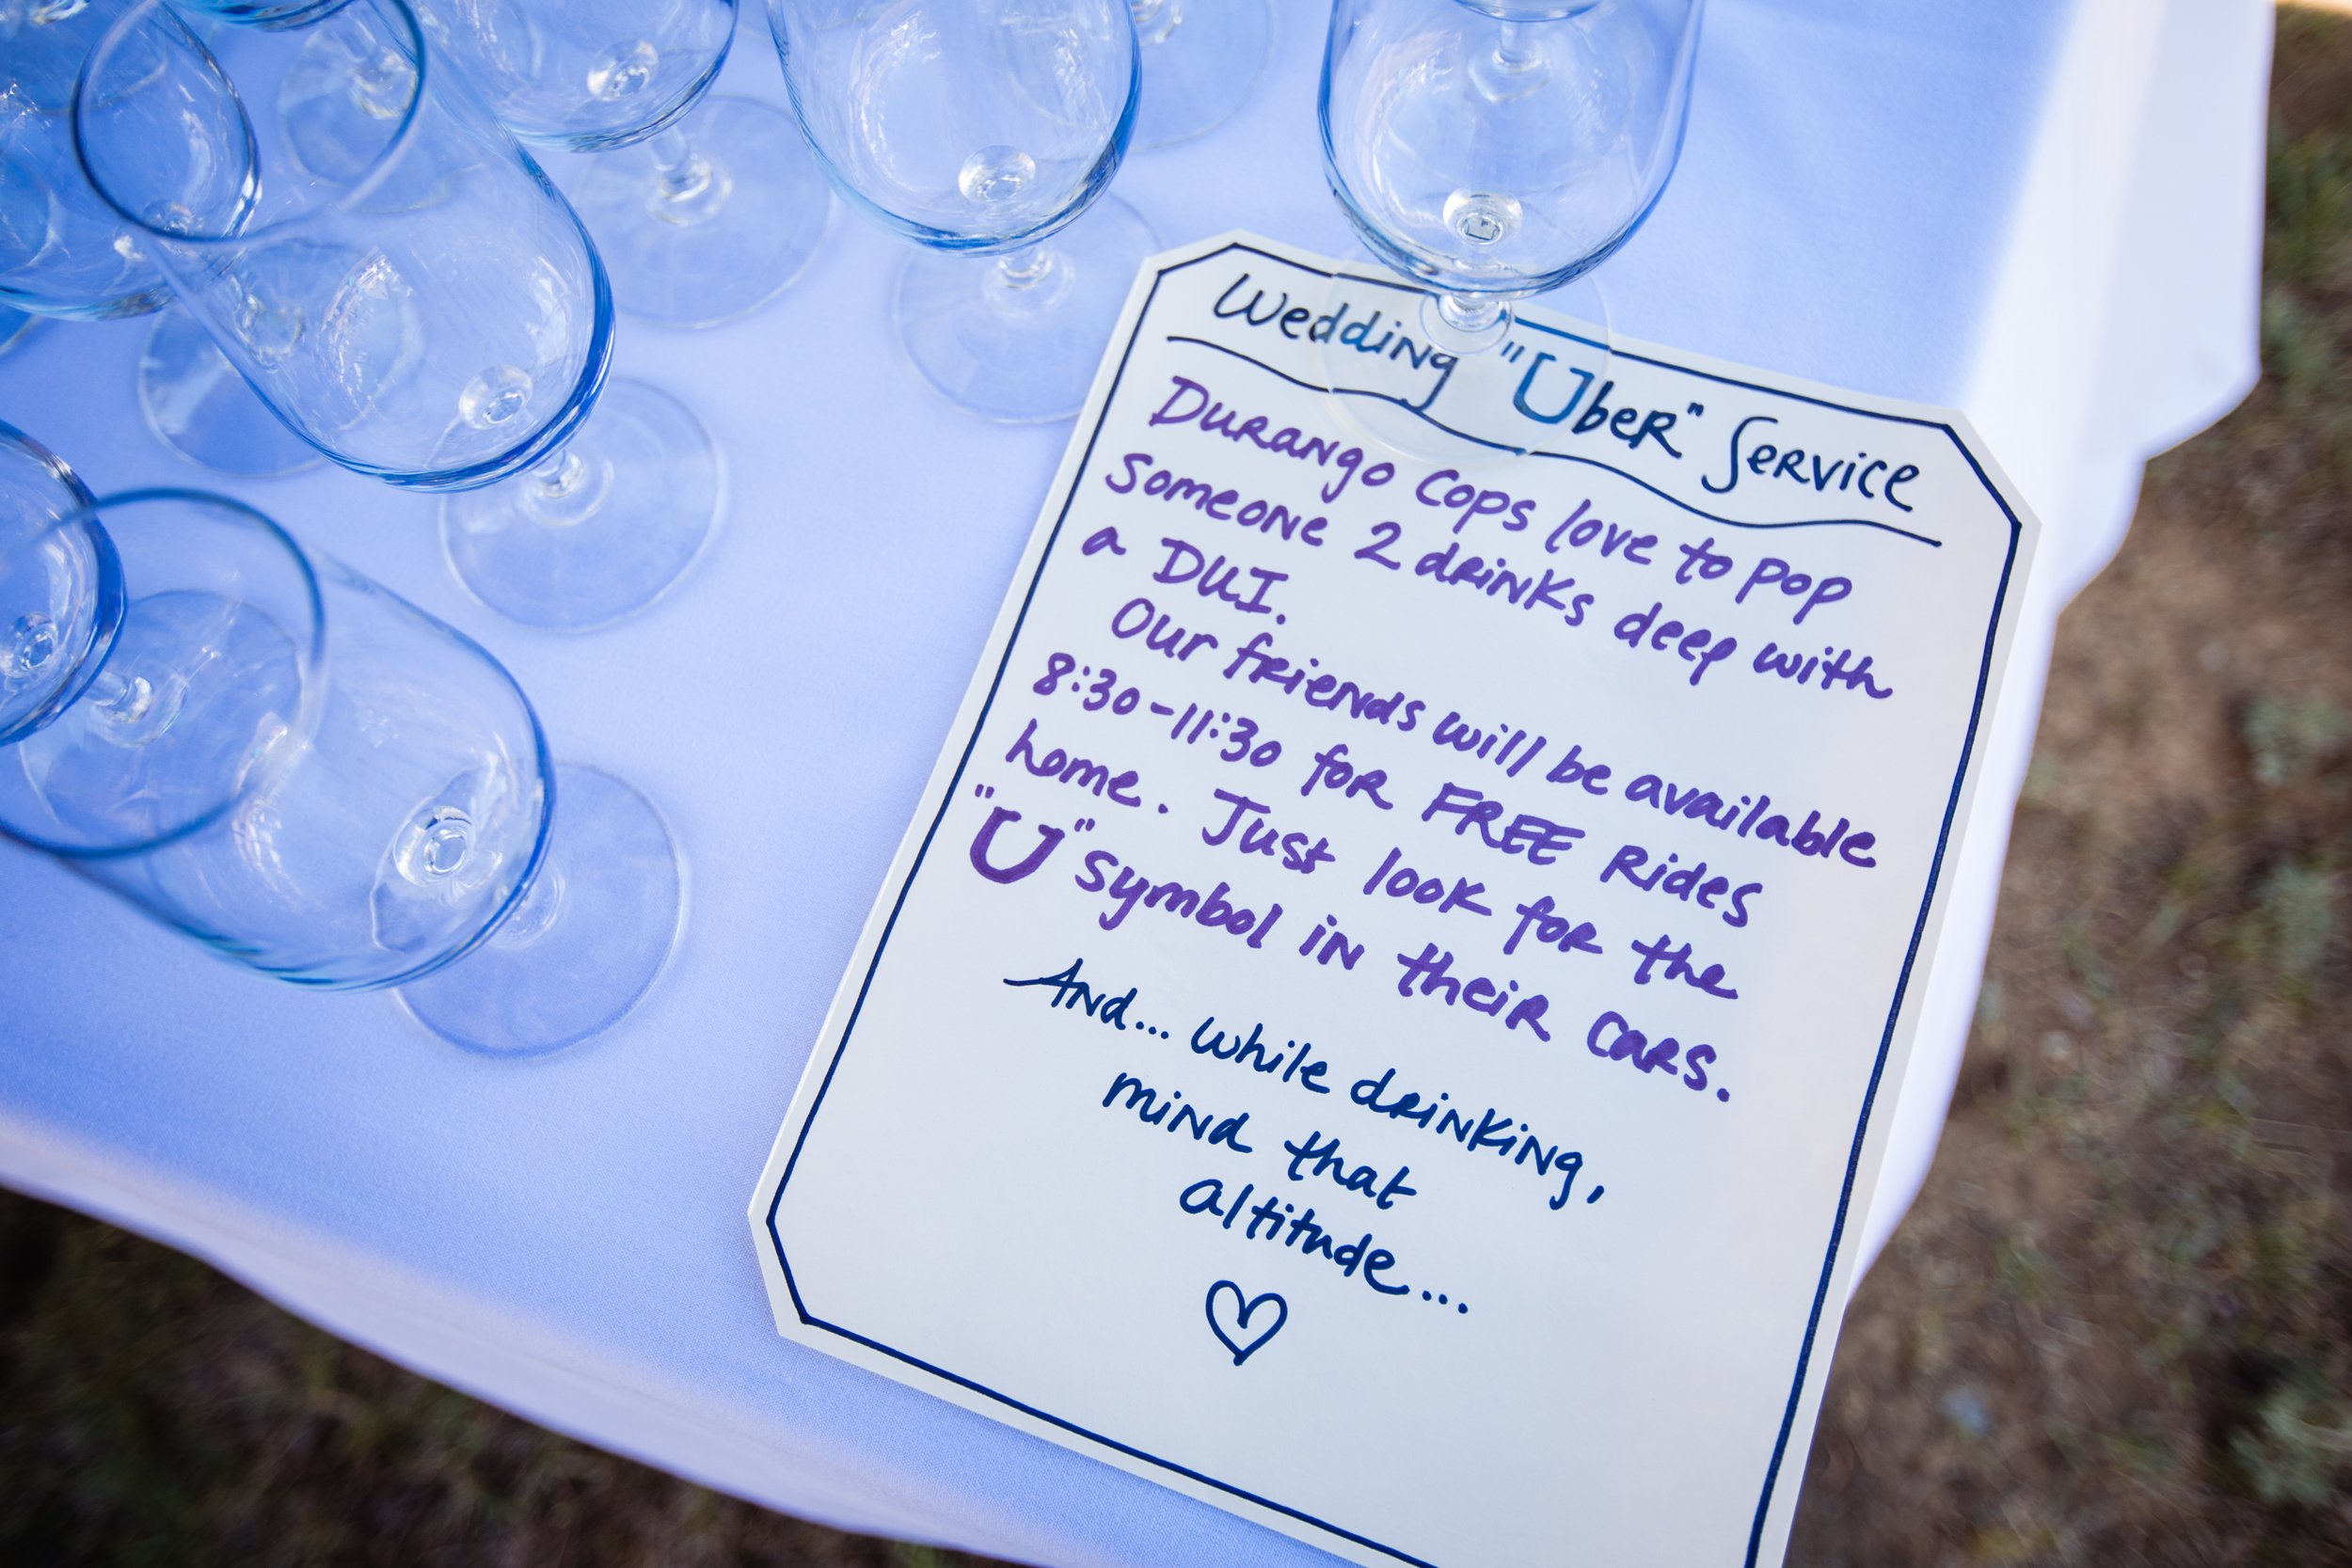 Wedding "Uber" Service
Durango Cops love to pop
someone 2 drinks deep with
a DUI.
Our friends will be available
8:30-11:30 for FREE Rides
home. Just look for the
"U" symbol in their cars.
And... while drinking,
mind that
altitude...